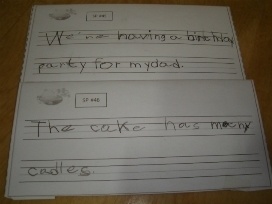 We're having a birthday
party for my dad.
The cake has many
cadles.